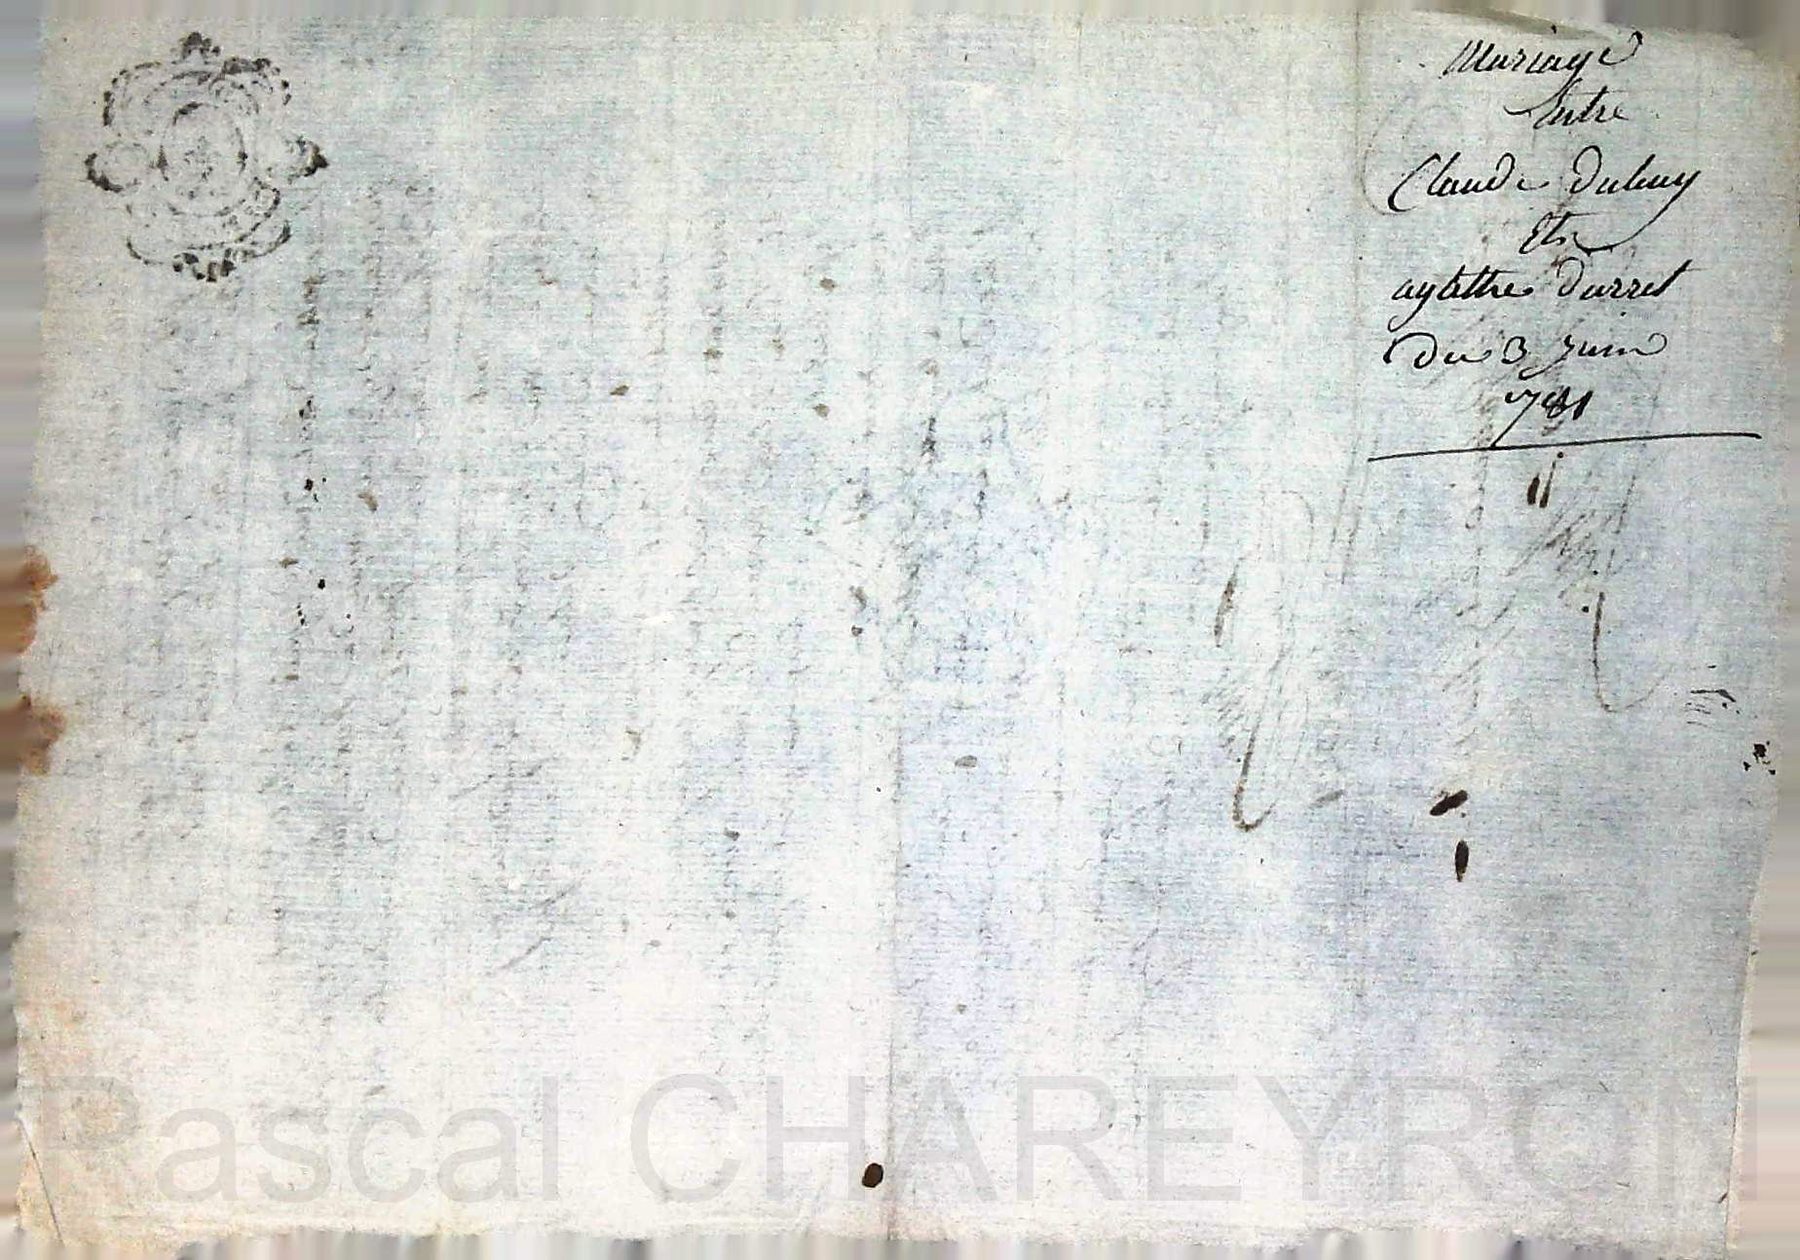 Mariage
Entre
Claude dubuy
Et
agathe durret
du 3 juin
1781
Pascal CHAREYRON